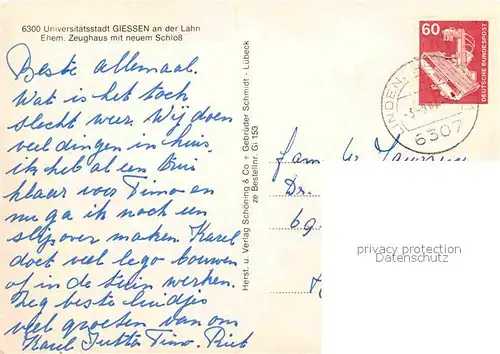 6300 Universitätsstadt GIESSEN an der Lahn
Ehem. Zeughaus mit neuem Schloß
Beste allemaal.
Wat is het toch
slecht weer. Wij doen
veel dingen in huis,
ik heb al een
klaar voor Timo en
nu ga ik noch een
slipover maken. Karel
doet veel lego bouwen
of in de tuin werken.
Zeg beste luidjes
veel groeten van ons
Karel Jutta Timo. Riet
Herst. u. Verlag Schöning & Co + Gebrüder Schmidt - Lübeck
ze Bestellnr. Gi 153
60
DEUTSCHE BUNDESPOST
LINDEN,
6307
Fam
Dr.
69
privacy protection
Datenschutz